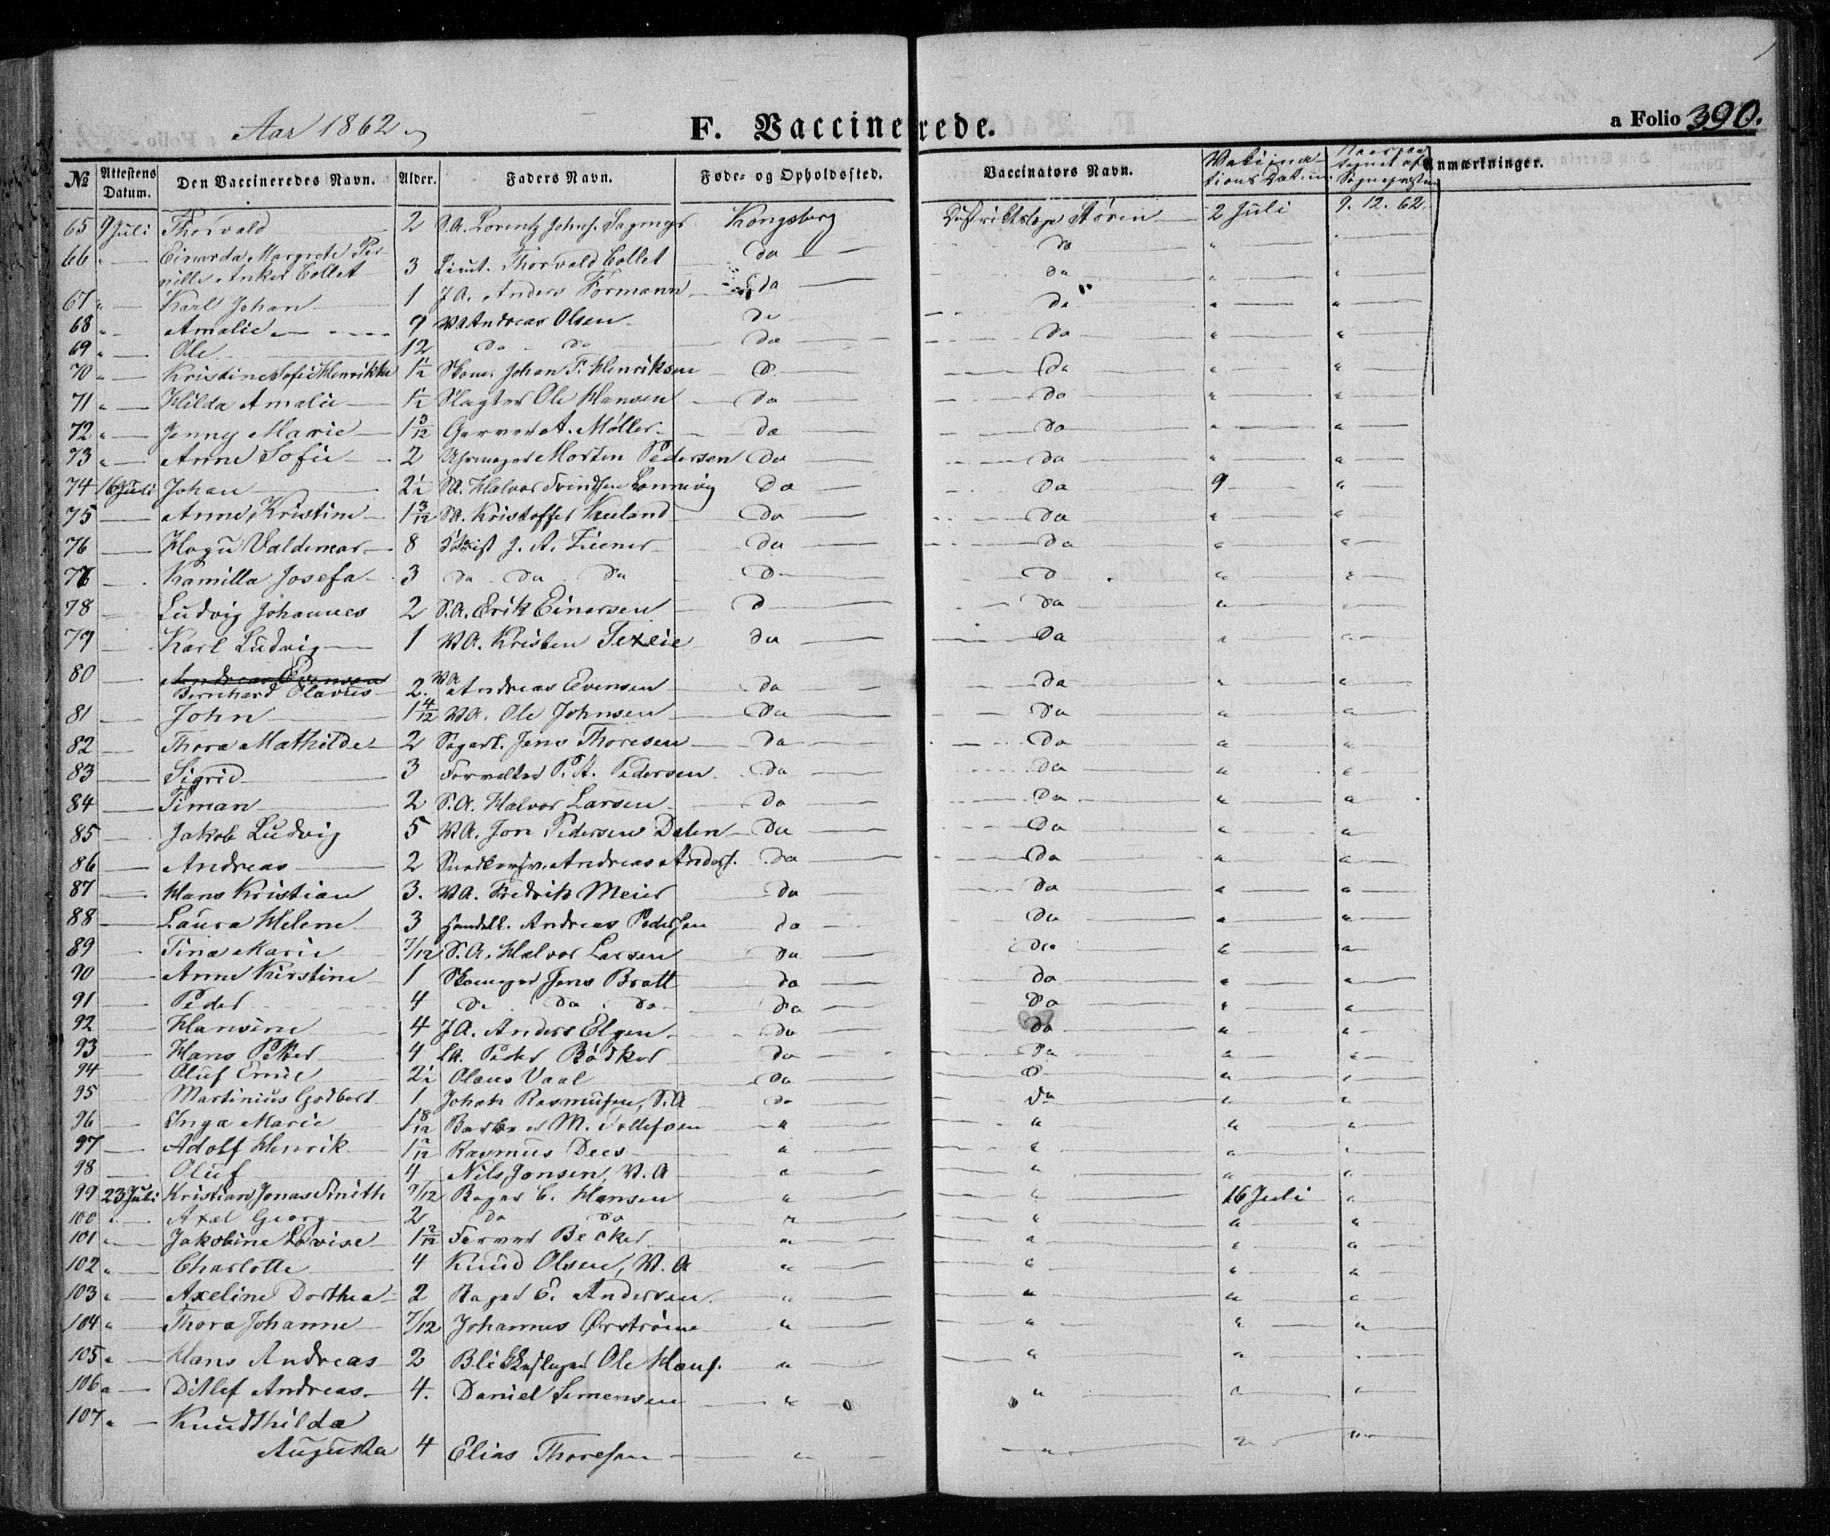 Aar 1862
F. Vaccinerede.
a Folio 390.
№ Attestens Datum. Den Vaccineredes Navn. Alder. Faders Navn. Føde- og Opholdssted. Vaccinators Navn. Vaksina- tions Datum Sognepresten Anmærkninger.
65 9 Juli Thorvald 2 S.A. Lorentz Johns. Kongsberg Støren 2 Juli 9. 12. 62.
66 " Einarda Margrete Per-
nille Anker Collet 3 Lieut. Thorvald Collet da da " "
67 " Karl Johan 1 J.A. Anders Formann da da " "
68 " Amalie 9 VA Andreas Olsen da da " "
69 " Ole 12 da da da da " "
70 " Kristine Sofie Henrikke 1½ Skom. Johan F. Henriksen d. da " "
71 " Hilda Amalie ½ Slagter Ole Hansen da da " "
72 " Jenny Marie 1 3/12 Garver A. Møller da da " "
73 " Anne Sofie 2 Uhrmager Morten Pedersen da da " "
74 16 Juli Johan 2½ SA. Halvor da da 9 "
75 Anne Kristine 1 3/12 SA. Kristoffer da da " "
76 Hagu Valdemar 8 J. A. da da " "
76 Kamilla Josefa 3 da da da d d " "
78 Ludvig Johannes 2 S.A. Erik Einersen d da " "
79 Karl Ludvig 1 VA. Kristen da da " "
80 Andreas Evensen
Bernhard Olavus 2. VA Andreas Evensen da da " "
81 John 1 4/12 VA. Ole Johnsen da da " "
82 Thora Mathilde 2 Sagarb. Jens Thoresen da da " "
83 Sigrid 3 Forvalter P. A. Pedersen da da " "
84 Timan 2 S.A. Halvor Larsen da da " "
85 Jakob Ludvig 5 VA. Jon Pedersen Dalen da da " "
86 Andreas 2 Andreas Anders. da da " "
87 Hans Kristian 3. VA. Fredrik Meier da da " "
88 Laura Helene 3 Handelb. Andreas Pedersen da da " "
89 Tina Marie 7/12 S.A. Halvor Larsen da da " "
90 Anne Kirstine 1 Skomager Jens Bratt da da " "
91 Peder 4 da da da da da " "
92 Hansine 4 J.A. Anders Elgen da da " "
93 Hans Petter 4 LA. Peder Bødker da da " "
94 Oluf Emil 2½ Olaus Vaal da d " "
95 Martinius Godbert 1 Johan Rasmusen, S.A da da " "
96 Inga Marie 1 8/12 Barber M. Tollefsen " " " "
97 Adolf Henrik 1 2/12 Rasmus Dees " " " "
98 Oluf 4 Nils Jansen, V.A " " " "
99 23 Juli Kristians Jonas Smith 9/12 Bager C. Hansen " " 16 Juli "
100 " Axel Georg 2 da da " " " "
101 " Jakobine Lovise 1 2/12 Farver Becker " " " "
102 " Charlotte 4 Knud Olsen, V.A " " " "
103 " Axeline Dorthea 2 Bager E. Andersen " " " "
104 " Thora Johanne 7/12 Johannes Ørstrøm " " " "
105 " Hans Andreas 2 Blikkenslager Ole Hans. " " " "
106 " Ditlef Andreas 4. Daniel Simensen " " " "
107 " Knudthilda
Augusta 4 Elias Thoresen " " " "